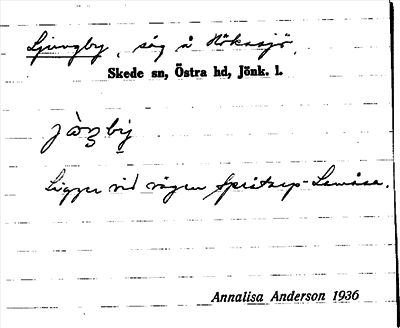 Ljungby, såg å Höksjö.
Skede sn, Östra hd, Jönk. l.
Ligger vid vägen Spritarp-
Annalisa Anderson 1936